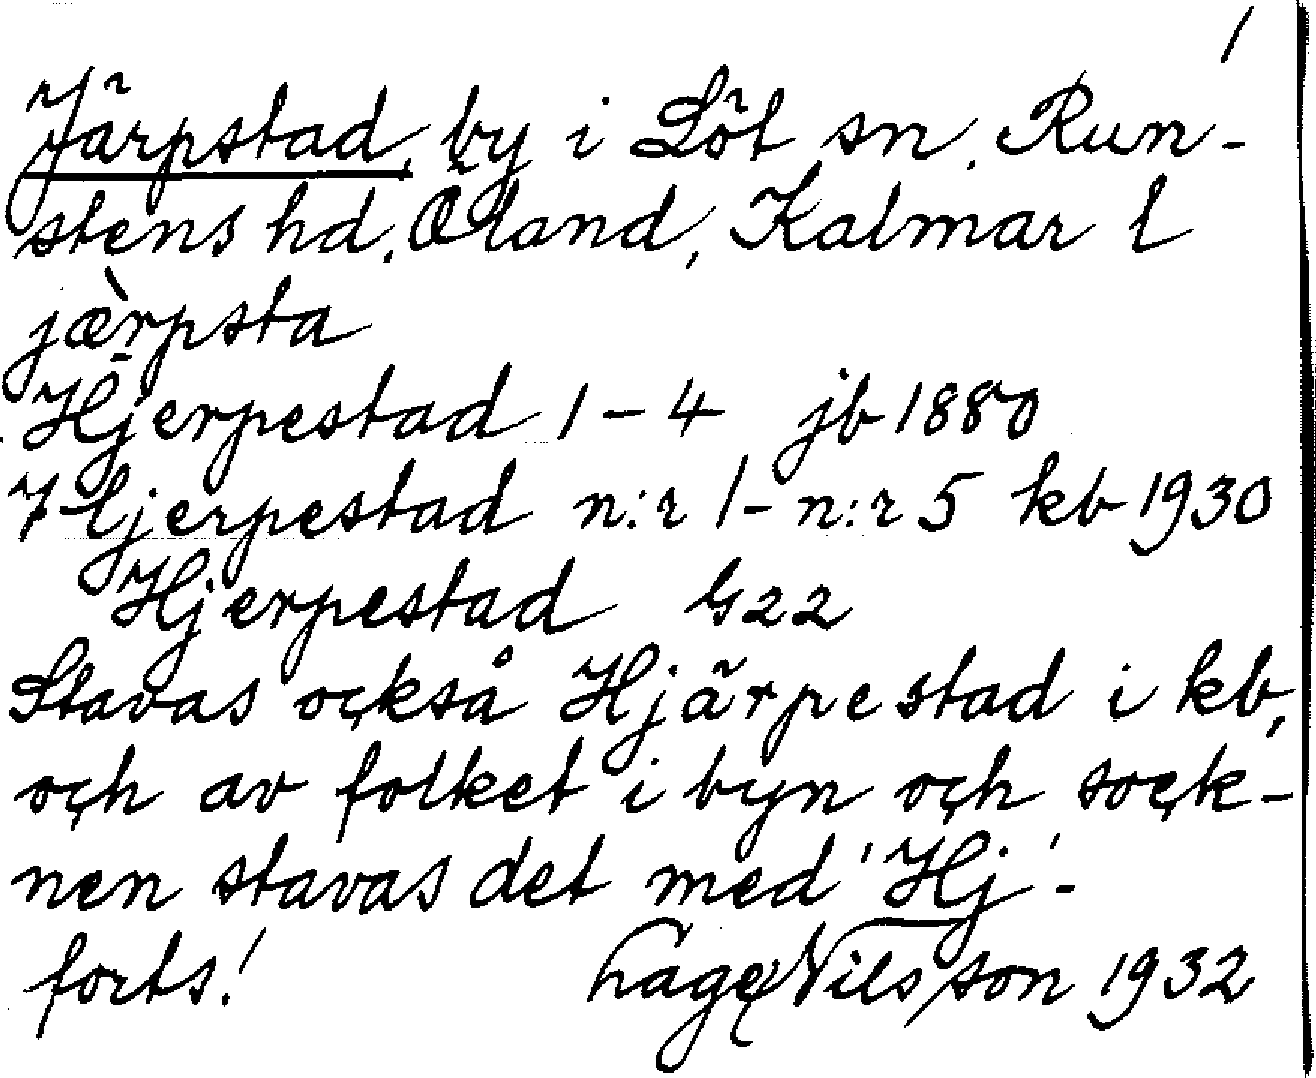 1
Järpstad, by i Löt sn, Run-
stens hd, Öland, Kalmar l
jæ̀rpsta
Hjerpestad 1-4 jb 1880
Hjerpestad n:r 1- n:r 5 kb 1930
Hjerpestad G22
Stavas också Hjärpestad i kb,
och av folket i byn och sock-
nen stavas det med 'Hj'-
forts! Lage Nilsson 1932